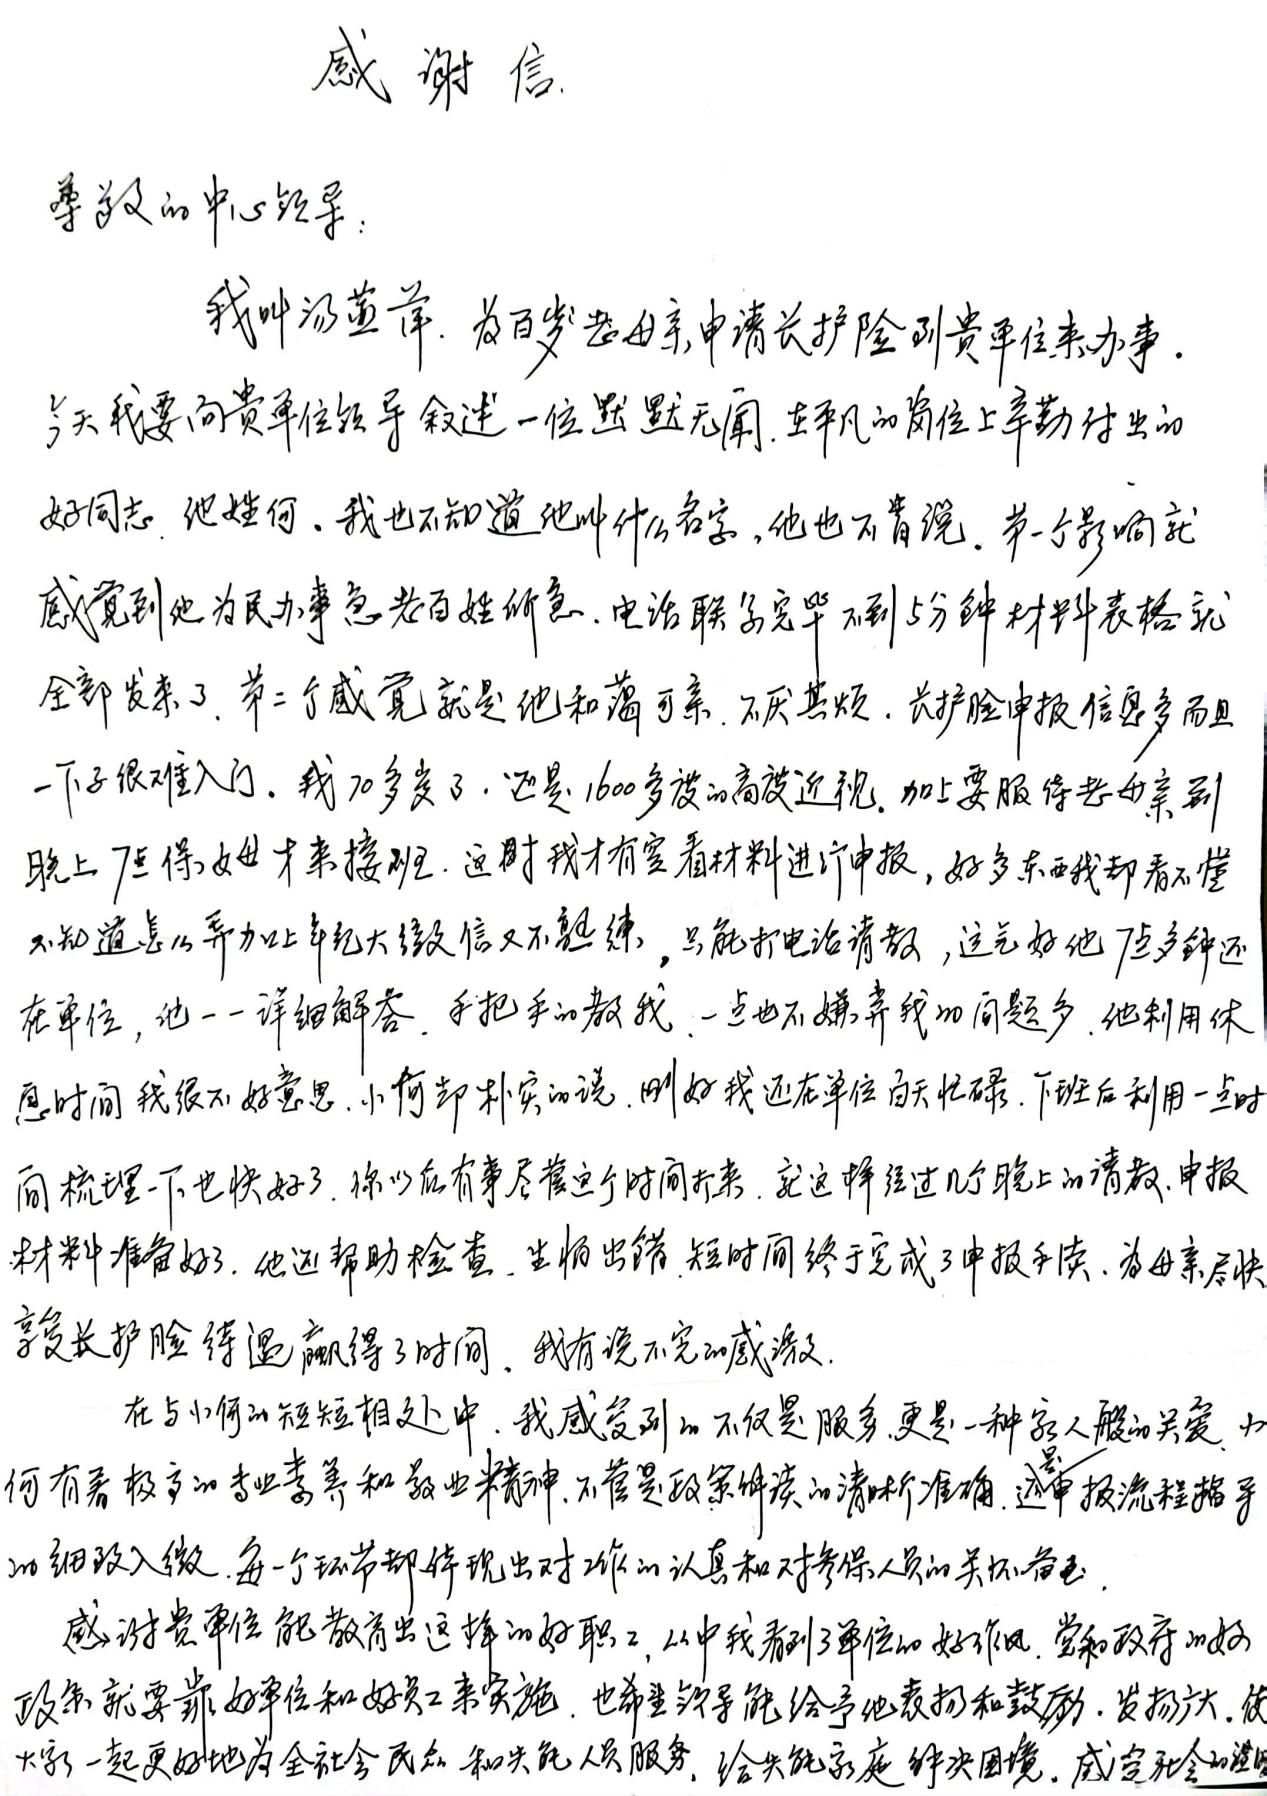 感谢信.
尊敬的中心领导:
我叫汤燕萍.为百岁老母亲申请长护险到贵单位来办事.
今天我要向贵单位领导叙述一位默默无闻.在平凡的岗位上辛勤付出的
好同志.他姓何。我也不知道他叫什么名字,他也不肯说。第一个影响就
感觉到他为民办事急老百姓所急.电话联系完毕不到5分钟材料表格就
全部发来了.第二个感觉就是他和蔼可亲.不厌其烦.长护险申报信息多而且
一下子很难入门。我70多岁了.还是1600多度的高度近视。加上要服侍老母亲到
晚上7点保姆才来接班.这时我才有空看材料进行申报,好多东西我却看不懂
不知道怎么弄加上年纪大微信又不熟练,只能打电话请教,这兄好他7点多钟还
在单位,他一一详细解答.手把手的教我.一点也不嫌弃我的问题多.他利用休
息时间我很不好意思.小何却朴实的说.刚好我还在单位白天忙碌.下班后利用一点时
间梳理一下也快好了.你以后有事尽管这个时间打来.就这样经过几个晚上的请教.申报
材料准备好了.他还帮助检查.生怕出错.短时间终于完成了申报手续.为母亲尽快
享受长护险待遇赢得了时间.我有说不完的感激.
在与小何的短短相处中.我感受到的不仅是服务.更是一种家人般的关爱.小
何有着极高的专业素养和敬业精神.不管是政策解读的清晰准确.还是申报流程指导
的细致入微.每一个环节都体现出对工作的认真和对参保人员的关怀备至.
感谢贵单位能教育出这样的好职工,从中我看到了单位的好作风.党和政府的好
政策就要靠好单位和好员工来实施.也希望领导能给予他表扬和鼓励.发扬广大.使
大家一起更好地为全社会民众和失能人员服务.给失能家庭解决困境.感官社会的温暖